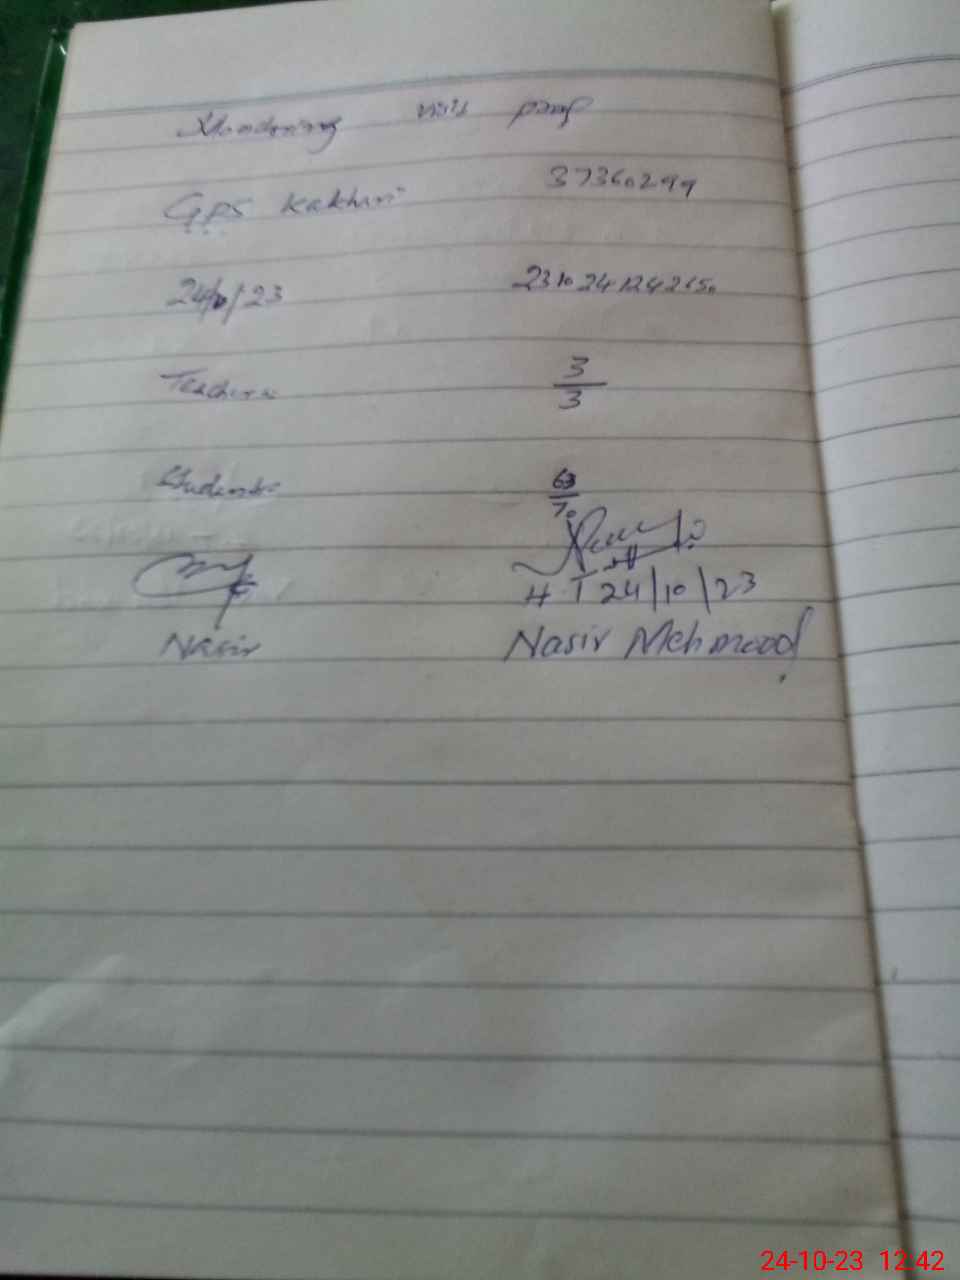 Monitoring visit proof
GPS Kakhri 37360299
24/10/23 231024124250
Teachers 3/3
Students 63/70
H.T 24/10/23
Nasir Nasir Mehmood
24-10-23 12:42